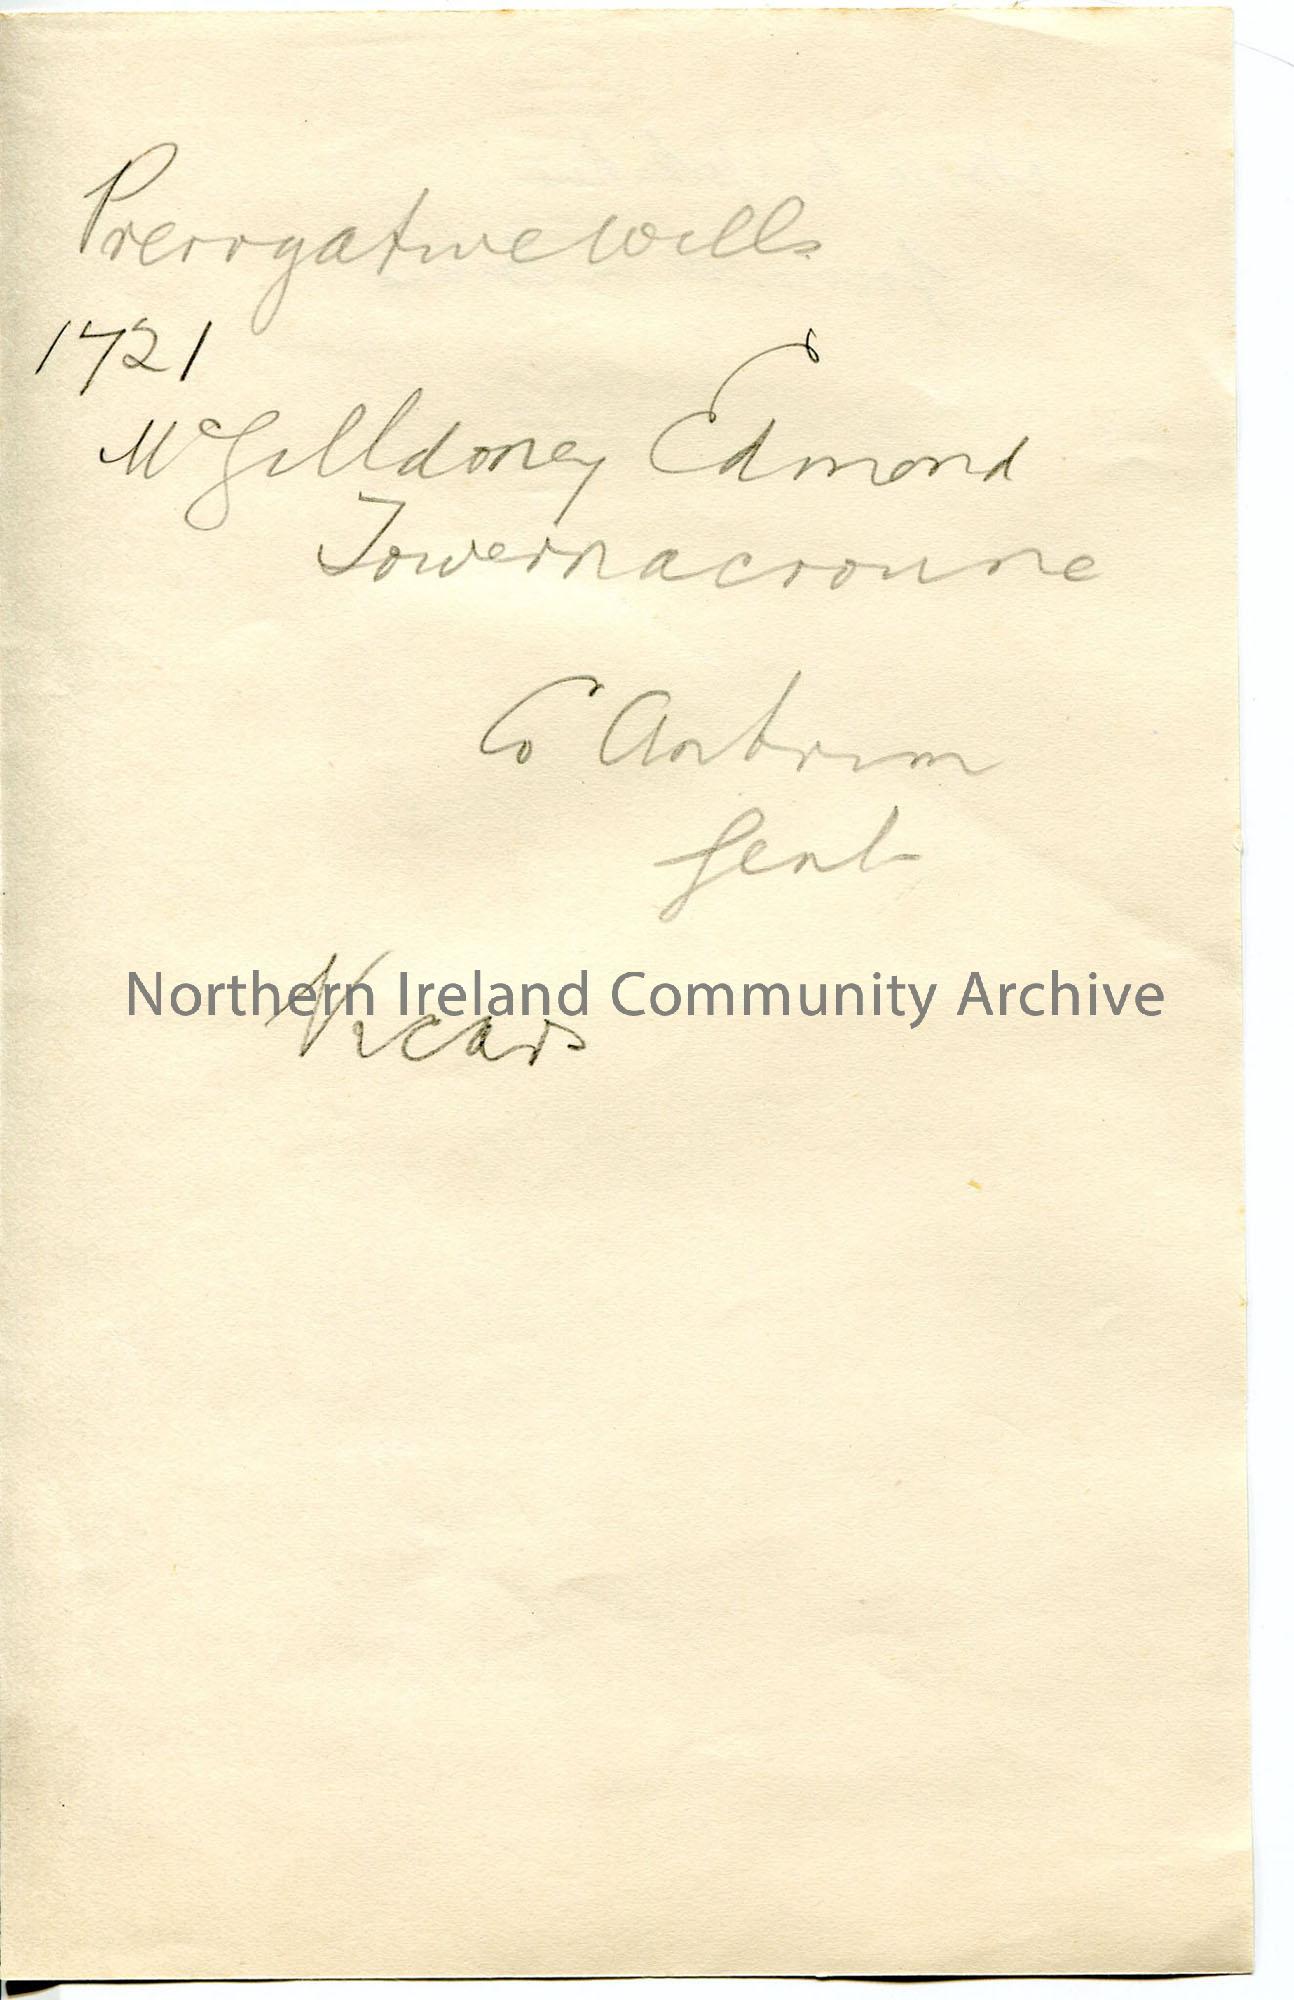 Prerogative Wills
1721
McGilldoney Edmond
Towernacroune
Co Antrim
Gent
Northern Ireland Community Archive
Vicars